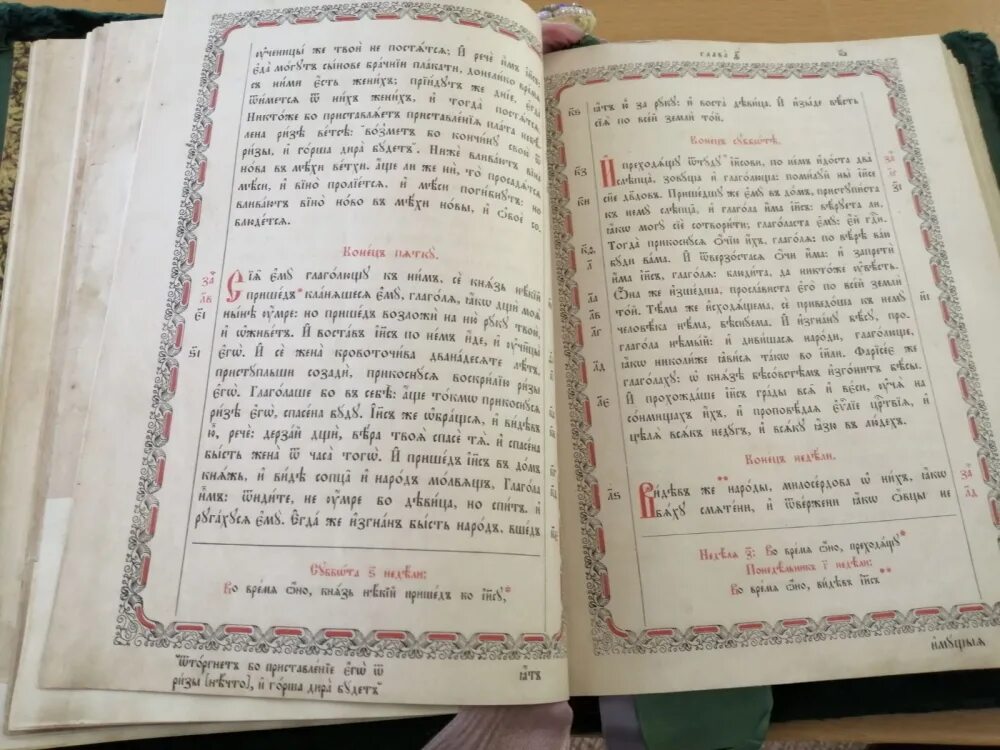 ᲂу҆ченицы̀ же твоѝ не постѧ́тсѧ; И҆ речѐ и҆̀мъ і҆и҃съ:
є҆да̀ мо́гꙋтъ сы́нове бра́чнїи пла́кати, доне́лико вре́мѧ
съ ни́ми є҆́сть жени́хъ; прїи́дꙋтъ же дні́е, є҆гда̀
ѿи́метсѧ ѿ ни́хъ жени́хъ, и҆ тогда̀ постѧ́тсѧ.
Никто́же бо приставлѧ́етъ приставле́нїѧ пла́та небѣ́-
лена ри́зѣ ве́тсѣ: во́зметъ бо кончи́нꙋ свою̀ ѿ
ри́зы, и҆ го́рша дира̀ бꙋ́детъ. Нижѐ влива́ютъ вїна̀
но́ва въ мѣ́хи ве́тхи: а҆́ще ли же нѝ, то̀ просадѧ́тсѧ
мѣ́си, и҆ вїно̀ пролїе́тсѧ, и҆ мѣ́си поги́бнꙋтъ: но
влива́ютъ вїно̀ но́во въ мѣ́хи но́вы, и҆ ѻ҆бо́е со-
блюде́тсѧ.
Коне́цъ пѧткꙋ̀.
Сїѧ̑ є҆мꙋ̀ глаго́лющꙋ къ ни̑мъ, сѐ кнѧ́зь нѣ́кїй
прише́дъ* кла́нѧшесѧ є҆мꙋ̀, глаго́лѧ, ꙗ҆́кѡ дщѝ моѧ̀
ны́нѣ ᲂу҆́мре: но прише́дъ возложѝ на ню̀ рꙋ́кꙋ твою̀,
и҆ ѡ҆живе́тъ. И҆ воста́въ і҆и҃съ по не́мъ и҆́де, и҆ ᲂу҆чн҃цы̀
є҆гѡ̀. И҆ сѐ жена̀ кровоточи́ва двана́десѧте лѣ́тъ,
пристꙋ́пльши созадѝ, прикоснꙋ́сѧ воскри́лїю ри́зы
є҆гѡ̀. Глаго́лаше бо въ себѣ̀: а҆́ще то́кмѡ прикоснꙋ́сѧ
ри́зѣ є҆гѡ̀, спасе́на бꙋ́дꙋ. І҆и҃съ же ѡ҆бра́щсѧ, и҆ ви́дѣвъ
ю҆̀, речѐ: дерза́й дщѝ, вѣ́ра твоѧ̀ спасе́ тѧ. и҆ спасе́на
бы́сть жена̀ ѿ часа̀ тогѡ̀. И҆ прише́дъ і҆и҃съ въ до́мъ
кнѧ́жь, и҆ ви́дѣ сопцы̀ и҆ наро́дъ мо́лвѧщь, глаго́ла
и҆̀мъ: ѿиди́те, не ᲂу҆́мре бо дѣви́ца, но спи́тъ. и҆
рꙋга́хꙋсѧ є҆мꙋ̀. Є҆гда́ же и҆згна́нъ бы́сть наро́дъ, вше́дъ
Сꙋббѡ́та ѕ҃ недѣ́ли:
Во вре́мѧ ѻ҆́но, кнѧ́зь нѣ́кїй прише́дъ ко і҆и҃сꙋ,*
"ѿто́ргнетъ бо приставле́нїе є҆гѡ̀ ѿ
ри́зы [нѣ́что], и҆ го́рша дира̀ бꙋ́детъ"
ꙗ҆́тъ
Глава̀ ѳ҃
ꙗ҆́тъ ю҆̀ за рꙋ́кꙋ: и҆ воста̀ дѣви́ца. И҆ и҆зы́де вѣ́сть
сїѧ̀ по все́й землѝ то́й.
Коне́цъ сꙋббѡ́тѣ.
И҆ преходѧ́щꙋ ѿтꙋ́дꙋ і҆и҃сови, по не́мъ и҆до́ста два̀
слѣпца̑, зовꙋ̑ща и҆ глагѡ́люща: поми́лꙋй ны̀ і҆и҃се
сн҃е дв҃довъ. Прише́дшꙋ же є҆мꙋ̀ въ до́мъ, пристꙋпи́ста
къ немꙋ̀ слѣпца̑, и҆ глаго́ла и҆́ма і҆и҃съ: вѣ́рꙋета ли,
ꙗ҆́кѡ могꙋ̀ сїѐ сотвори́ти; глаго́ласта є҆мꙋ̀: є҆́й гдⷭ҇и.
Тогда̀ прикоснꙋ́сѧ ѻ҆́чїю и҆́хъ, глаго́лѧ: по вѣ́рѣ ва́ю
бꙋ́ди ва́ма. И҆ ѿверзо́стасѧ ѻ҆́чи и҆́ма: и҆ запретѝ
и҆́ма і҆и҃съ, глаго́лѧ: блюди́та, да никто́же ᲂу҆вѣ́сть.
Ѡ҆́на же и҆зше́дша, просла́виста є҆го̀ по все́й землѝ
то́й. Тѣ́ма же и҆сходѧ́щема, сѐ приведо́ша къ немꙋ̀
человѣ́ка нѣ́ма, бѣснꙋ́ема. И҆ и҆згна́нꙋ бѣ́сꙋ, про-
глаго́ла нѣмы́й: и҆ диви́шасѧ наро́ди, глаго́люще,
ꙗ҆́кѡ николи́же ꙗ҆ви́сѧ та́кѡ во і҆и҃ли. Фарїсе́є же
глаго́лахꙋ: ѡ҆ кнѧ́зѣ бѣсо́встѣмъ и҆зго́нитъ бѣ́сы.
И҆ прохожда́ше і҆и҃съ гра́ды всѧ̑ и҆ вє́си, ᲂу҆чѧ̀ на
со́нмищахъ и҆́хъ, и҆ проповѣ́даѧ є҆ѵⷢ҇лїе црⷭ҇твїѧ, и҆
цѣлѧ̀ всѧ́къ недꙋ́гъ, и҆ всѧ́кꙋ ꙗ҆́зю въ лю́дехъ.
Коне́цъ недѣ́ли.
Ви́дѣвъ же** наро́ды, милосе́рдова ѡ҆ ни́хъ, ꙗ҆́кѡ
бѧ́хꙋ смѧте́ни, и҆ ѿве́ржени ꙗ҆́кѡ ѻ҆́вцы не
Недѣ́лѧ з҃: Во вре́мѧ ѻ҆́но, преходѧ́щꙋ*
Понедѣ́льникъ і҃ недѣ́ли:
Во вре́мѧ ѻ҆́но, ви́дѣвъ і҆и҃съ**
и҆мꙋ́щыѧ